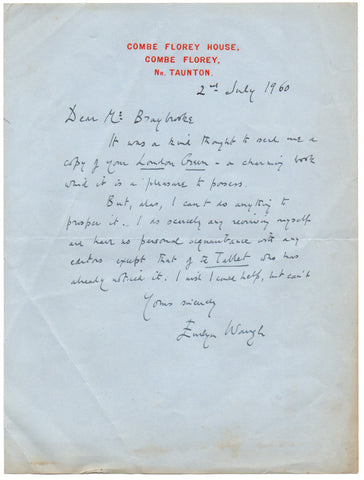 COMBE FLOREY HOUSE,
COMBE FLOREY,
NR. TAUNTON.
2nd July 1960
Dear Mr Braybrooke
It was a kind thought to send me a
copy of your London Green - a charming book
which it is a pleasure to possess.
But, alas, I can't do anything to
prosper it. I do scarcely any reviewing myself
and have no personal acquaintance with any
editors except that of the Tablet who has
already noticed it. I wish I could help, but can't
Yours sincerely
Evelyn Waugh